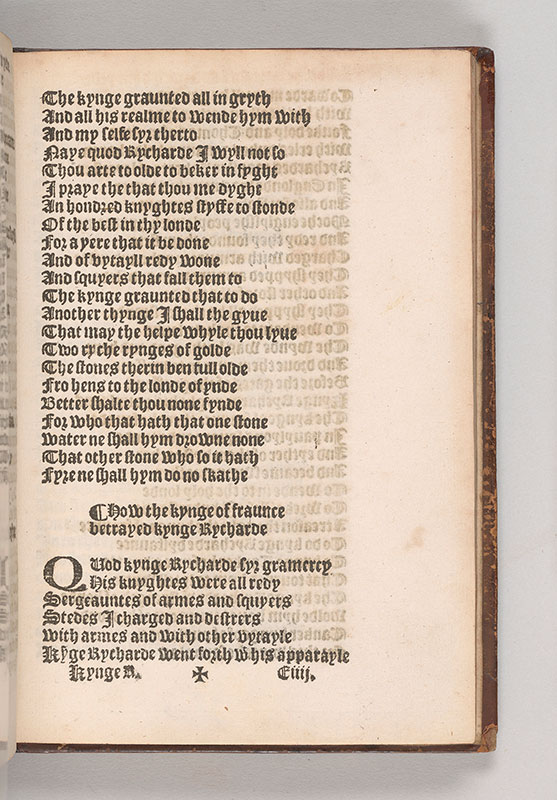 The kynge graunted all in gryth
And all his realme to wende hym with
And my selfe syr therto
Naye quod Rycharde I wyll not so
Thou arte to olde to beker in fyght
I praye the that thou me dyghe
An hondred knyghtes styffe to stonde
Of the best in thy londe
For a yere that it be done
And of vytayll redy wone
And squyers that fall them to
The kynge graunted that to do
Another thynge I shall the gyue
That may the helpe whyle thou lyue
Two ryche rynges of golde
The stones therin ben full olde
Fro hens to the londe of ynde
Better shalte thou none fynde
For who that hath that one stone
water ne shall hym drowne none
That other stone who so it hath
Fyre ne shall hym do no skathe
¶How the kynge of fraunce
betrayed kynge Rycharde
QUod kynge Rycharde syr gramercy
His knyghtes were all redy
Sergeauntes of armes and squyers
Stedes I charged and destrers
with armes and with other vytayle
Kȳge Rycharde went forth w his apparayle
Kynge R. ✠ Eiiij.